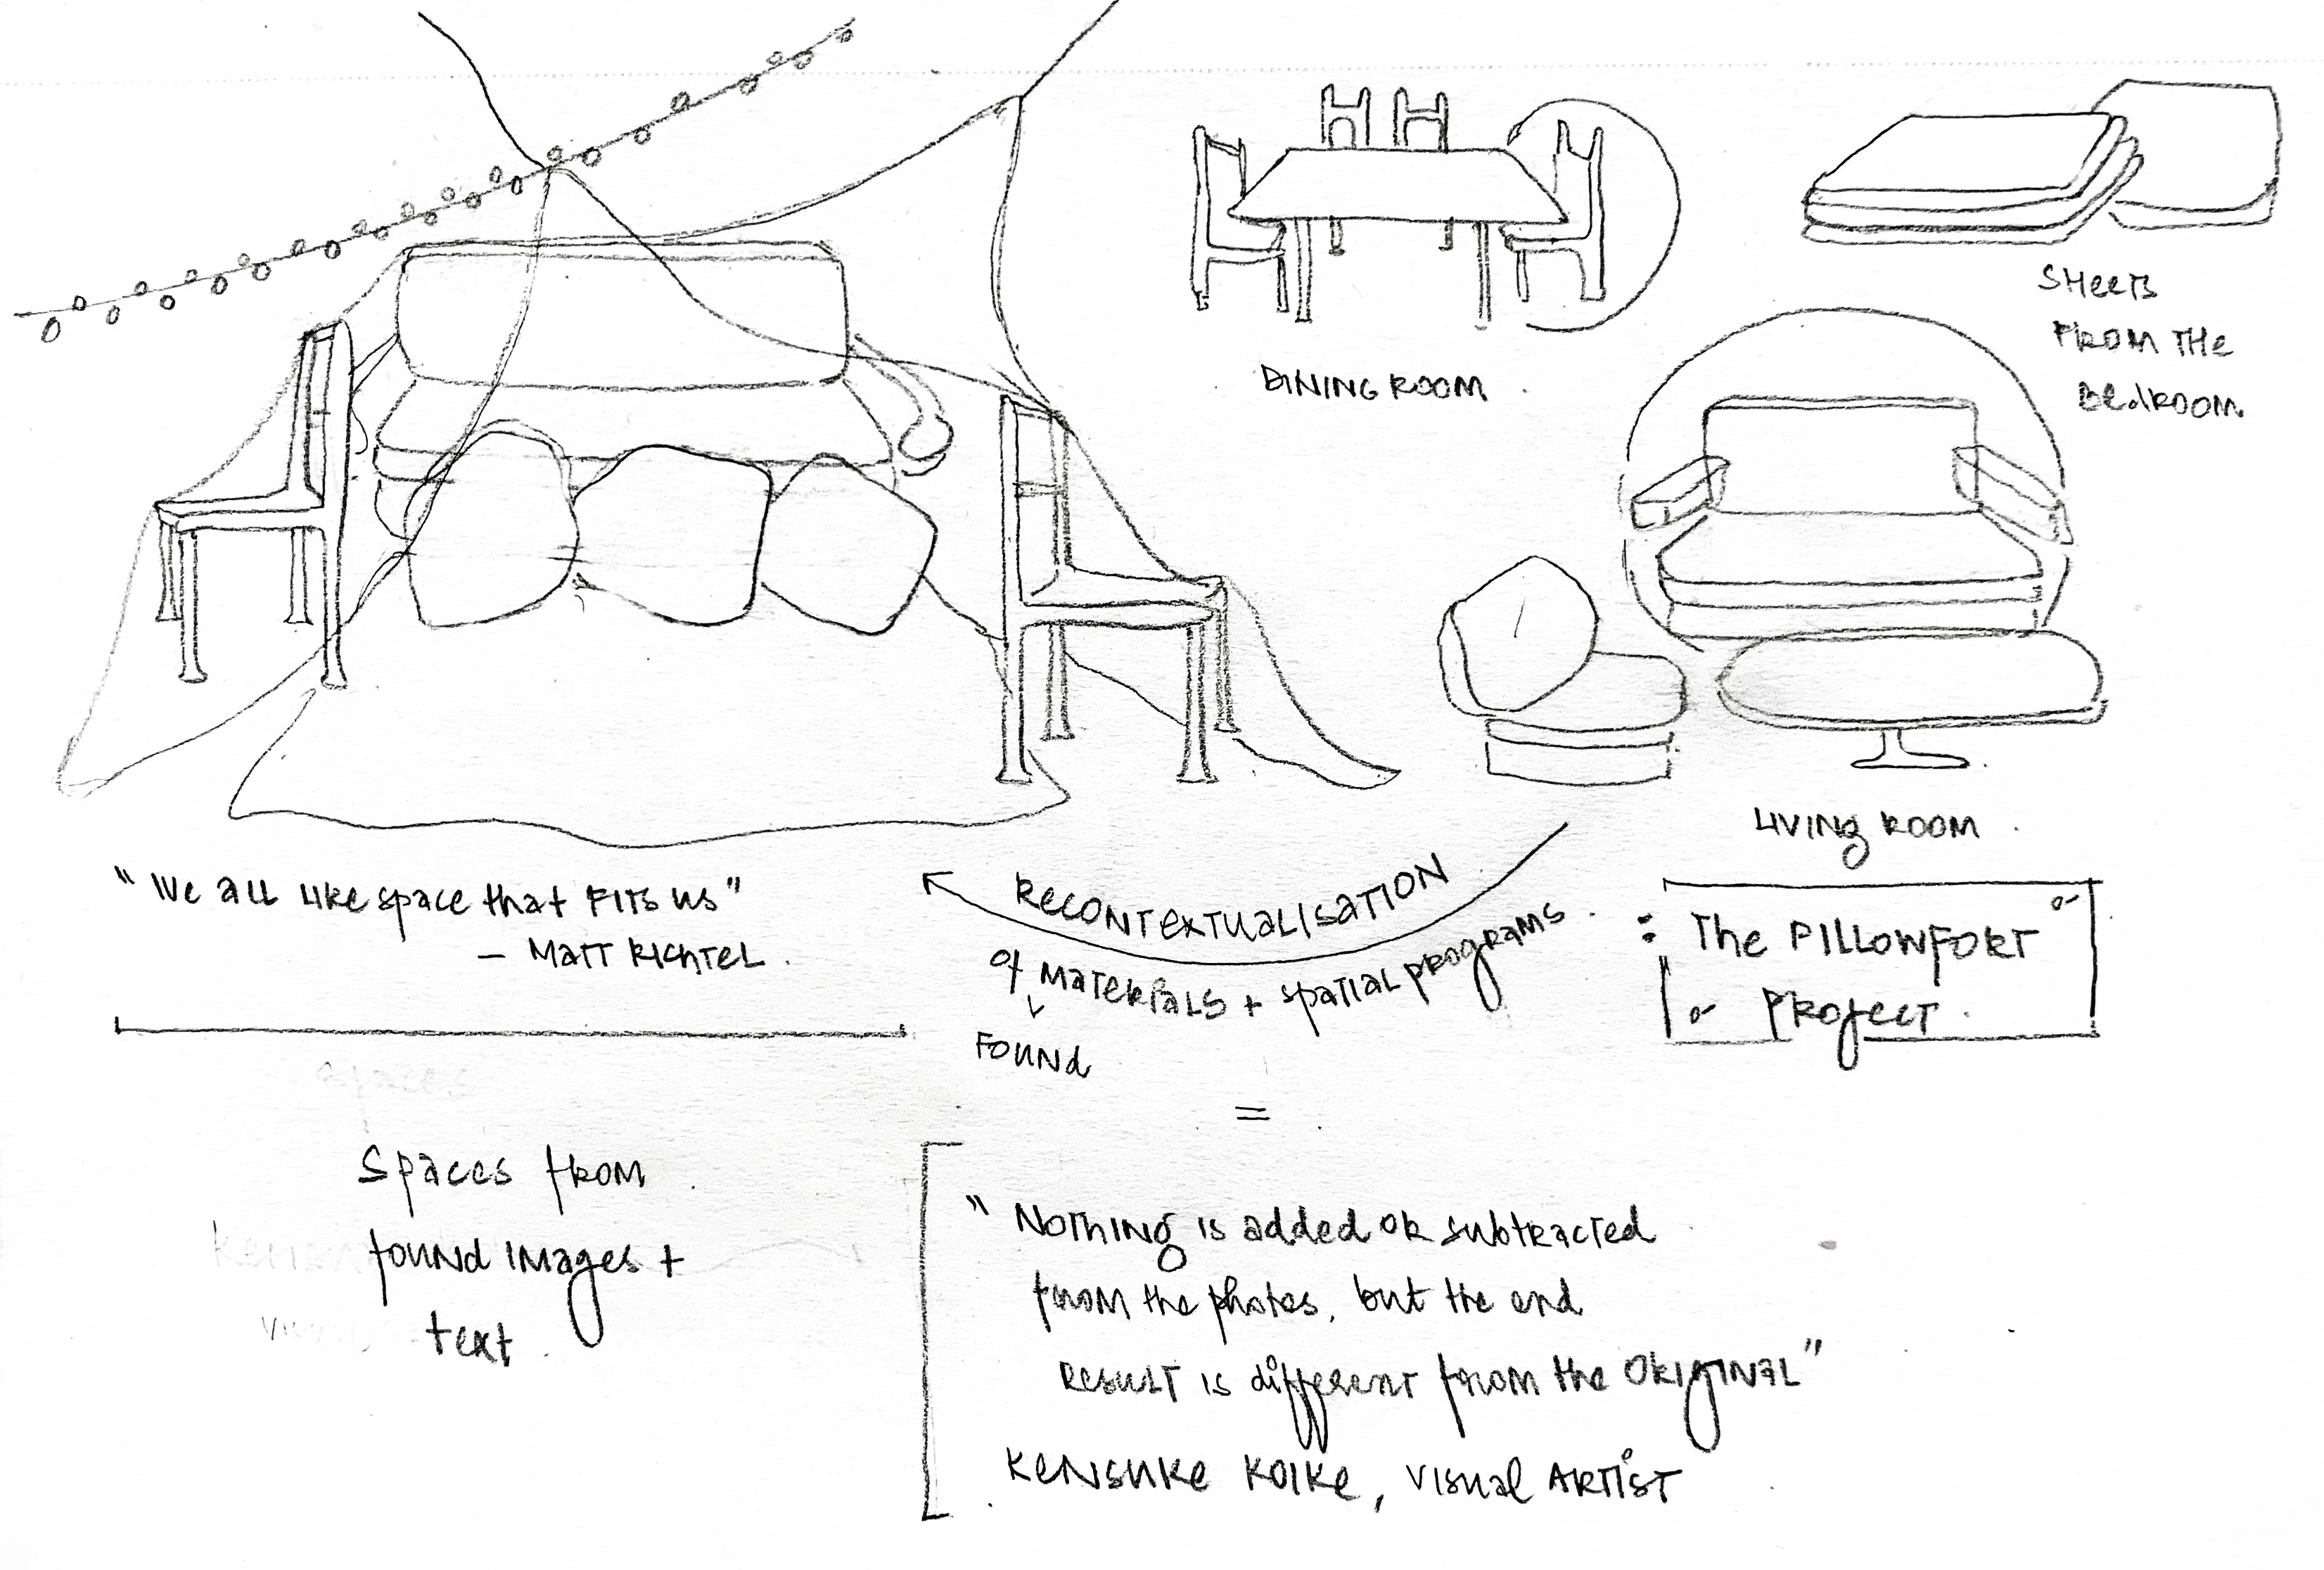 DINING ROOM
SHEETS
FROM THE
BEDROOM
LIVING ROOM
"We all like space that FITS us"
— MATT RICHTEL.
RECONTEXTUALISATION
of MATERIALS + spatial programs
FOUND
: The PILLOWFORT
PROJECT.
=
Spaces from
found images +
text.
"NOTHING is added or subtracted
from the photos, but the end
RESULT is different from the ORIGINAL"
KENSUKE KOIKE, VISUAL ARTIST